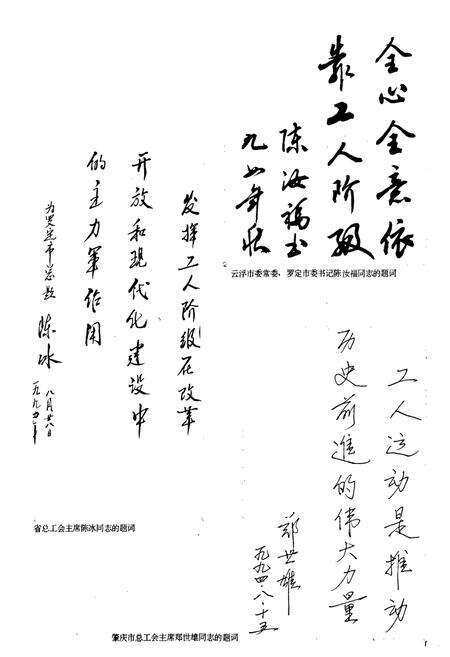 全心全意依
靠工人阶级
陈汝福书
九四年秋
云浮市委常委、罗定市委书记陈汝福同志的题词
发挥工人阶级在改革
开放和现代化建设中
的主力军作用
为罗定市总题
陈冰
一九九四年
八月廿八日
省总工会主席陈冰同志的题词
工人运动是推动
历史前進的伟大力量
郑世雄
一九九四·八·十五
肇庆市总工会主席郑世雄同志的题词
1